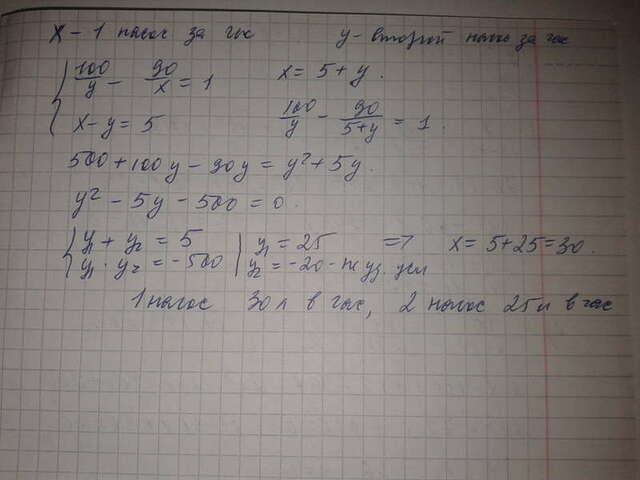 x - 1 насос за час y - второй насос за час
{ 100/y - 90/x = 1 x = 5 + y.
x - y = 5 100/y - 90/(5+y) = 1.
500 + 100y - 90y = y² + 5y.
y² - 5y - 500 = 0.
{ y₁ + y₂ = 5 { y₁ = 25 => x = 5 + 25 = 30.
y₁ · y₂ = -500 y₂ = -20 - усл
1 насос 30 л в час, 2 насос 25 л в час